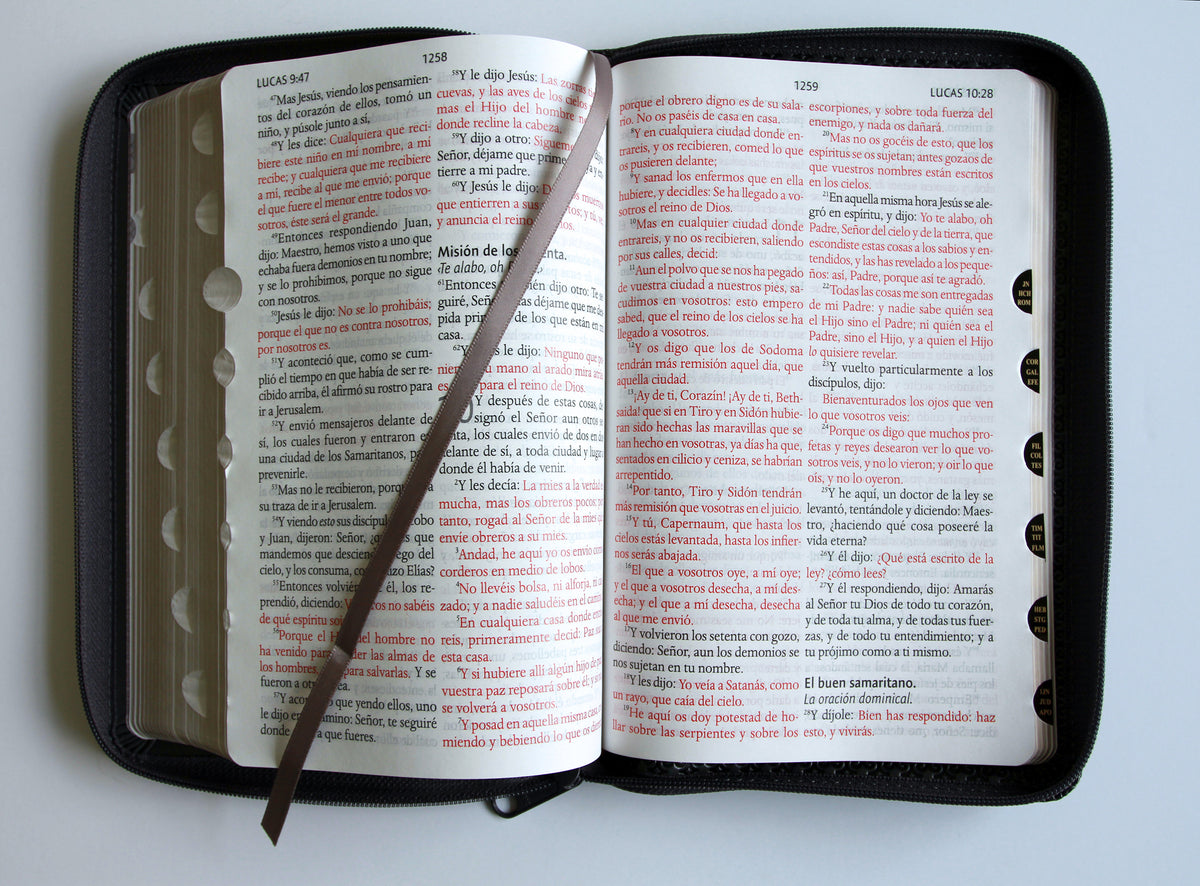 1258
LUCAS 9:47
47Mas Jesús, viendo los pensamien-
tos del corazón de ellos, tomó un
niño, y púsole junto a sí,
48Y les dice: Cualquiera que reci-
biere este niño en mi nombre, a mí
recibe; y cualquiera que me recibiere
a mí, recibe al que me envió; porque
el que fuere el menor entre todos vo-
sotros, éste será el grande.
49Entonces respondiendo Juan,
dijo: Maestro, hemos visto a uno que
echaba fuera demonios en tu nombre;
y se lo prohibimos, porque no sigue
con nosotros.
50Jesús le dijo: No se lo prohibáis;
porque el que no es contra nosotros,
por nosotros es.
51Y aconteció que, como se cum-
plió el tiempo en que había de ser re-
cibido arriba, él afirmó su rostro para
ir a Jerusalem.
52Y envió mensajeros delante de
sí, los cuales fueron y entraron en
una ciudad de los Samaritanos, para
prevenirle.
53Mas no le recibieron, porque
su traza de ir a Jerusalem.
54Y viendo esto sus
y Juan, dijeron: Señor,
mandemos que del
cielo, y los consuma, Elías?
55Entonces él, los re-
prendió, diciendo: no sabéis
de qué espíritu
56Porque el del hombre no
ha venido para las almas de
los hombres, para salvarlas. Y se
fueron a
57Y que yendo ellos, uno
le dijo en Señor, te seguiré
donde que fueres.
58Y le dijo Jesús: Las zorras
cuevas, y las aves de los cielos
mas el Hijo del hombre
donde recline la cabeza.
59Y dijo a otro:
Señor, déjame que ya y
tierre a mi padre.
60Y Jesús le dijo:
que entierren a sus y tú,
y anuncia el reino
Misión de los
«Te alabo, oh
61Entonces dijo otro: Te
guiré, déjame que me
pida de los que están en
casa.
62Y le dijo: Ninguno que
su mano al arado mira
para el reino de Dios.
Y después de estas cosas,
signó el Señor aun otros
los cuales envió de dos en
delante de sí, a toda ciudad y lugar
donde él había de venir.
2Y les decía: La mies a la verdad
mucha, mas los obreros pocos;
tanto, rogad al Señor de la mies
envíe obreros a su mies.
3Andad, he aquí yo os envío como
corderos en medio de lobos.
4No llevéis bolsa, ni alforja, ni
zado; y a nadie saludéis en el camino.
5En cualquiera casa donde
reis, primeramente decid: Paz
esta casa.
6Y si hubiere allí algún hijo de
vuestra paz reposará sobre él; y
se volverá a vosotros.
7Y posad en aquella misma casa,
miendo y bebiendo lo que os
1259
LUCAS 10:28
porque el obrero digno es de su sala-
rio. No os paséis de casa en casa.
8Y en cualquiera ciudad donde en-
trareis, y os recibieren, comed lo que
os pusieren delante;
9Y sanad los enfermos que en ella
hubiere, y decidles: Se ha llegado a vo-
sotros el reino de Dios.
10Mas en cualquier ciudad donde
entrareis, y no os recibieren, saliendo
por sus calles, decid:
11Aun el polvo que se nos ha pegado
de vuestra ciudad a nuestros pies, sa-
cudimos en vosotros: esto empero
sabed, que el reino de los cielos se ha
llegado a vosotros.
12Y os digo que los de Sodoma
tendrán más remisión aquel día, que
aquella ciudad.
13¡Ay de ti, Corazín! ¡Ay de ti, Beth-
saida! que si en Tiro y en Sidón hubie-
ran sido hechas las maravillas que se
han hecho en vosotras, ya días ha que,
sentados en cilicio y ceniza, se habrían
arrepentido.
14Por tanto, Tiro y Sidón tendrán
más remisión que vosotras en el juicio.
15Y tú, Capernaum, que hasta los
cielos estás levantada, hasta los infier-
nos serás abajada.
16El que a vosotros oye, a mí oye;
y el que a vosotros desecha, a mí des-
echa; y el que a mí desecha, desecha
al que me envió.
17Y volvieron los setenta con gozo,
diciendo: Señor, aun los demonios se
nos sujetan en tu nombre.
18Y les dijo: Yo veía a Satanás, como
un rayo, que caía del cielo.
19He aquí os doy potestad de ho-
llar sobre las serpientes y sobre los
escorpiones, y sobre toda fuerza del
enemigo, y nada os dañará.
20Mas no os gocéis de esto, que los
espíritus se os sujetan; antes gozaos de
que vuestros nombres están escritos
en los cielos.
21En aquella misma hora Jesús se ale-
gró en espíritu, y dijo: Yo te alabo, oh
Padre, Señor del cielo y de la tierra, que
escondiste estas cosas a los sabios y en-
tendidos, y las has revelado a los peque-
ños: así, Padre, porque así te agradó.
22Todas las cosas me son entregadas
de mi Padre: y nadie sabe quién sea
el Hijo sino el Padre; ni quién sea el
Padre, sino el Hijo, y a quien el Hijo
lo quisiere revelar.
23Y vuelto particularmente a los
discípulos, dijo:
Bienaventurados los ojos que ven
lo que vosotros veis:
24Porque os digo que muchos pro-
fetas y reyes desearon ver lo que vo-
sotros veis, y no lo vieron; y oir lo que
oís, y no lo oyeron.
25Y he aquí, un doctor de la ley se
levantó, tentándole y diciendo: Maes-
tro, ¿haciendo qué cosa poseeré la
vida eterna?
26Y él dijo: ¿Qué está escrito de la
ley? ¿cómo lees?
27Y él respondiendo, dijo: Amarás
al Señor tu Dios de todo tu corazón,
y de toda tu alma, y de todas tus fuer-
zas, y de todo tu entendimiento; y a
tu prójimo como a ti mismo.
El buen samaritano.
La oración dominical.
28Y díjole: Bien has respondido: haz
esto, y vivirás.
JN
HCH
ROM
COR
GAL
EFE
FIL
COL
TES
TIM
TIT
FLM
HEB
STG
PED
1JN
JUD
APO